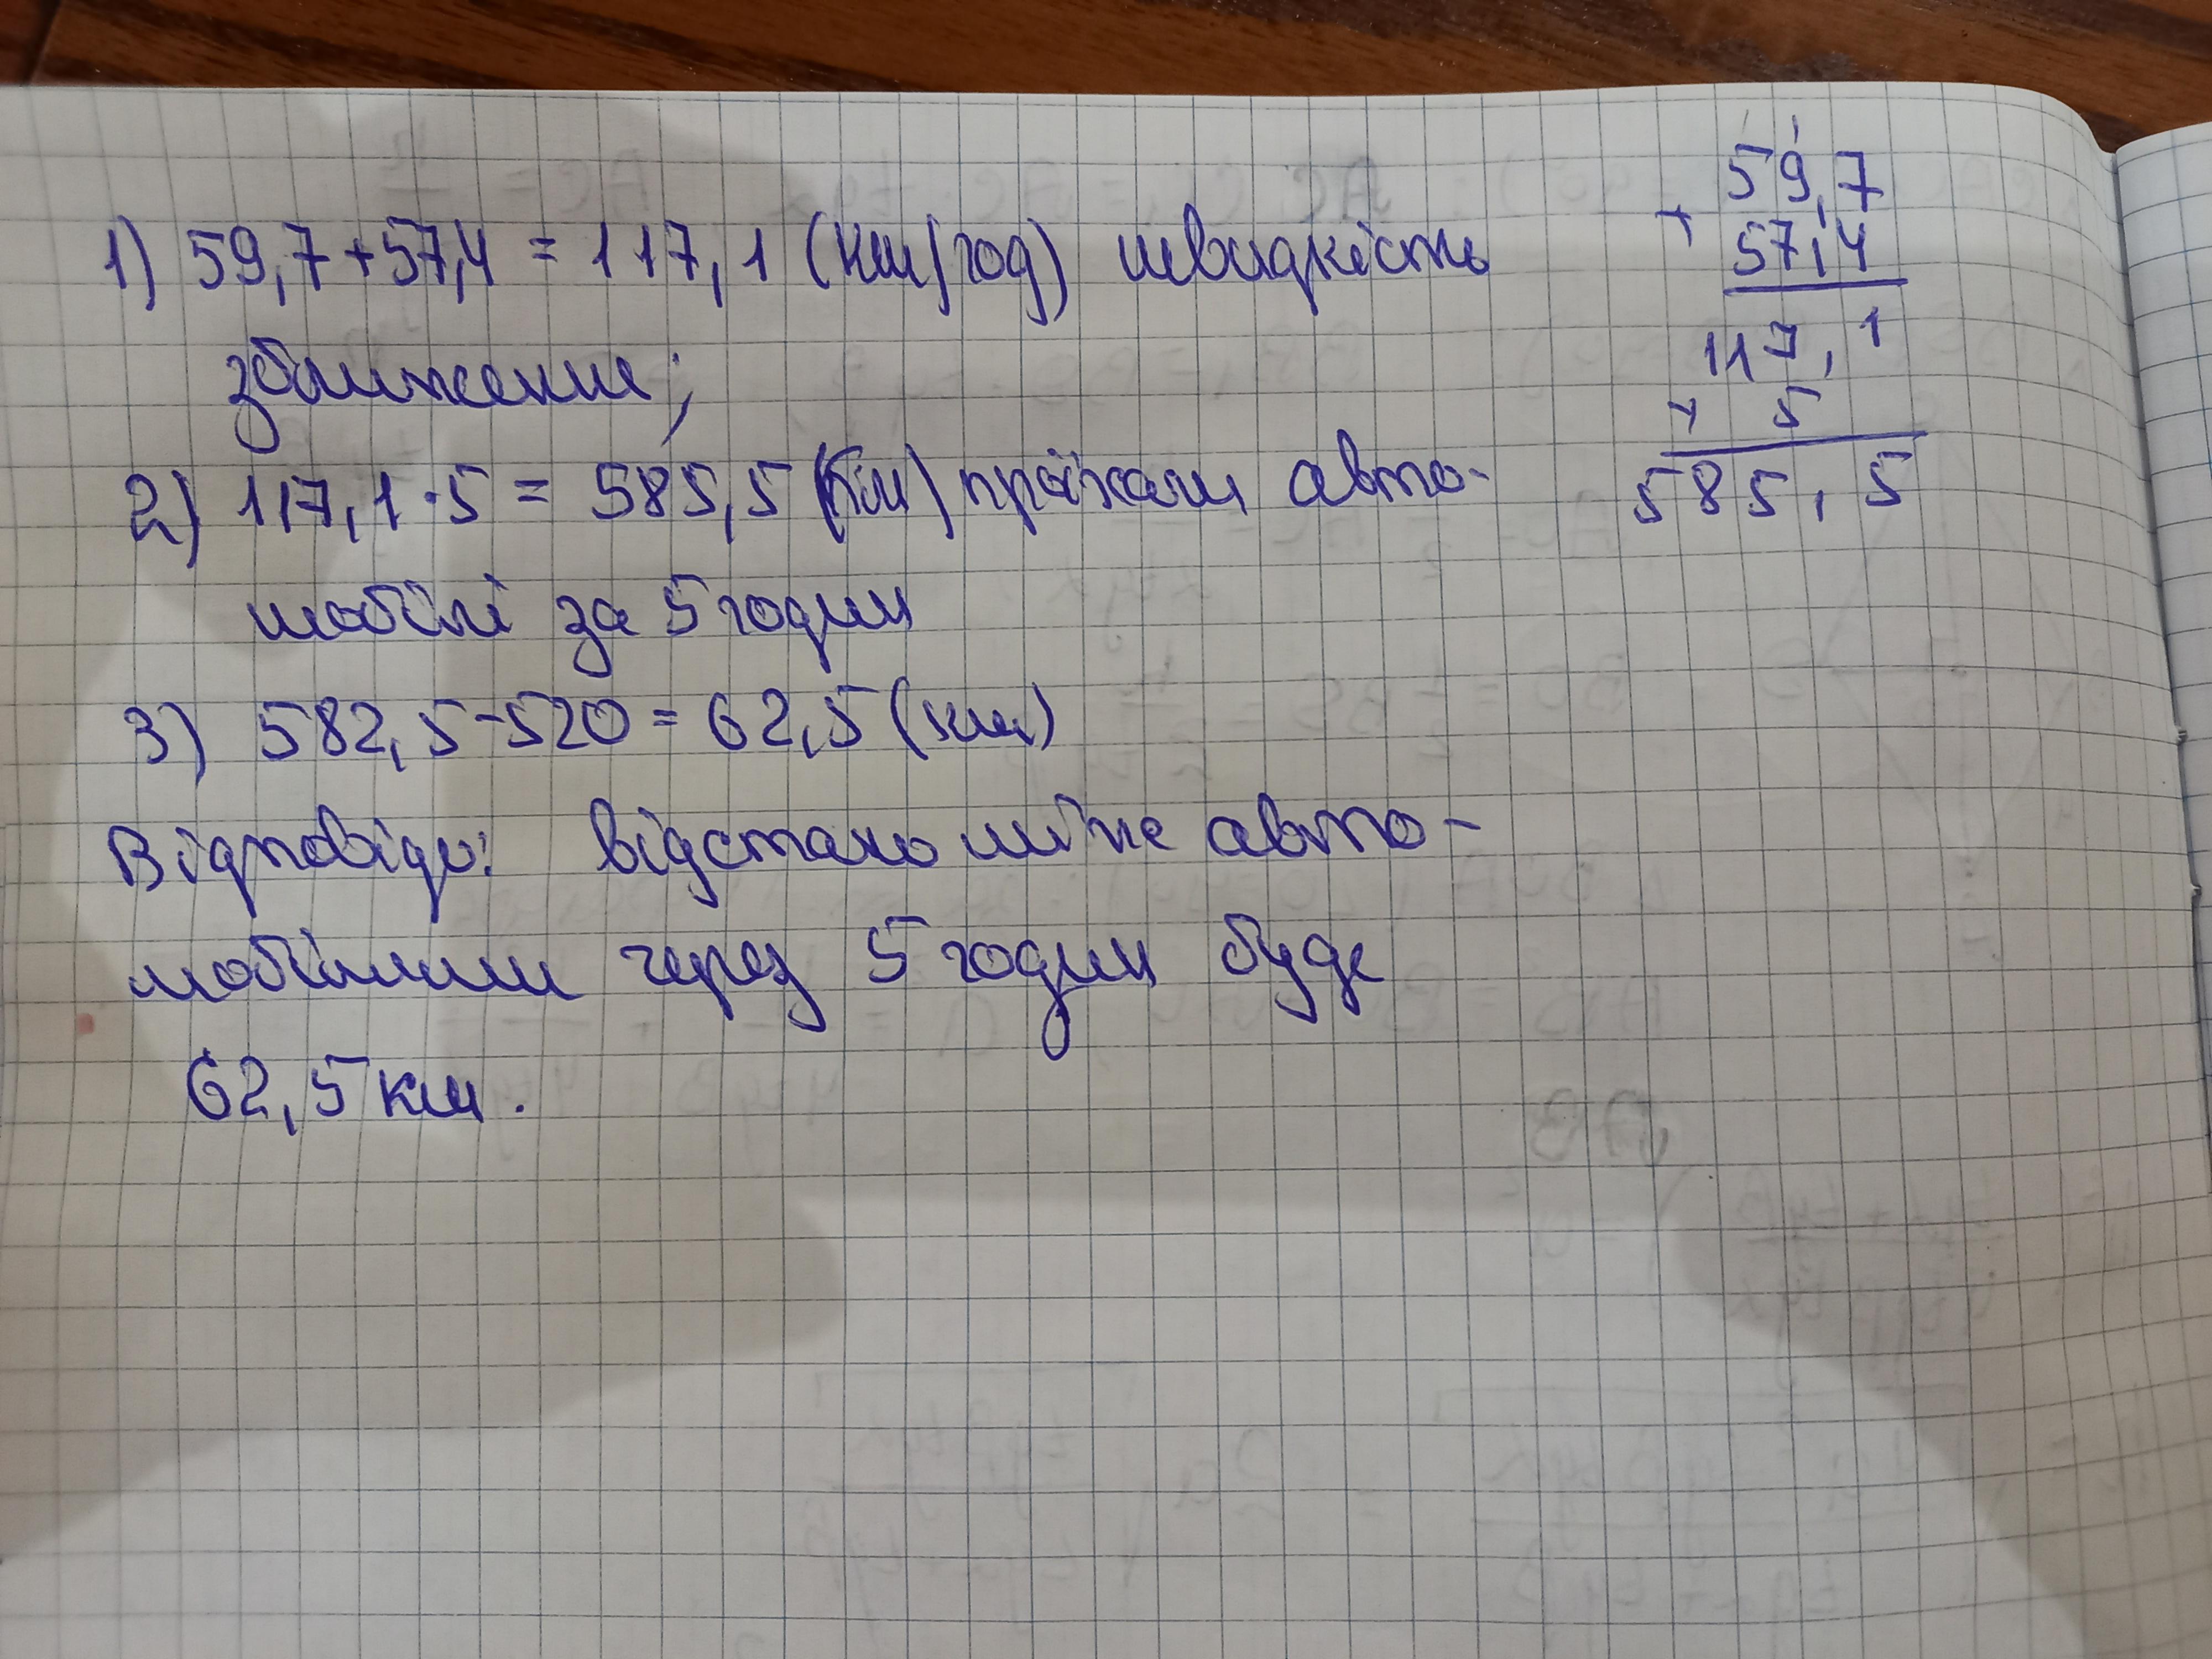 1) 59,7+57,4 = 117,1 (км/год) швидкість
зближення;
2) 117,1·5 = 585,5 (км) проїхали авто-
мобілі за 5 годин
3) 582,5-520 = 62,5 (км)
Відповідь: відстань між авто-
мобілями через 5 годин буде
62,5 км.
59,7
+
57,4
117,1
× 5
585,5